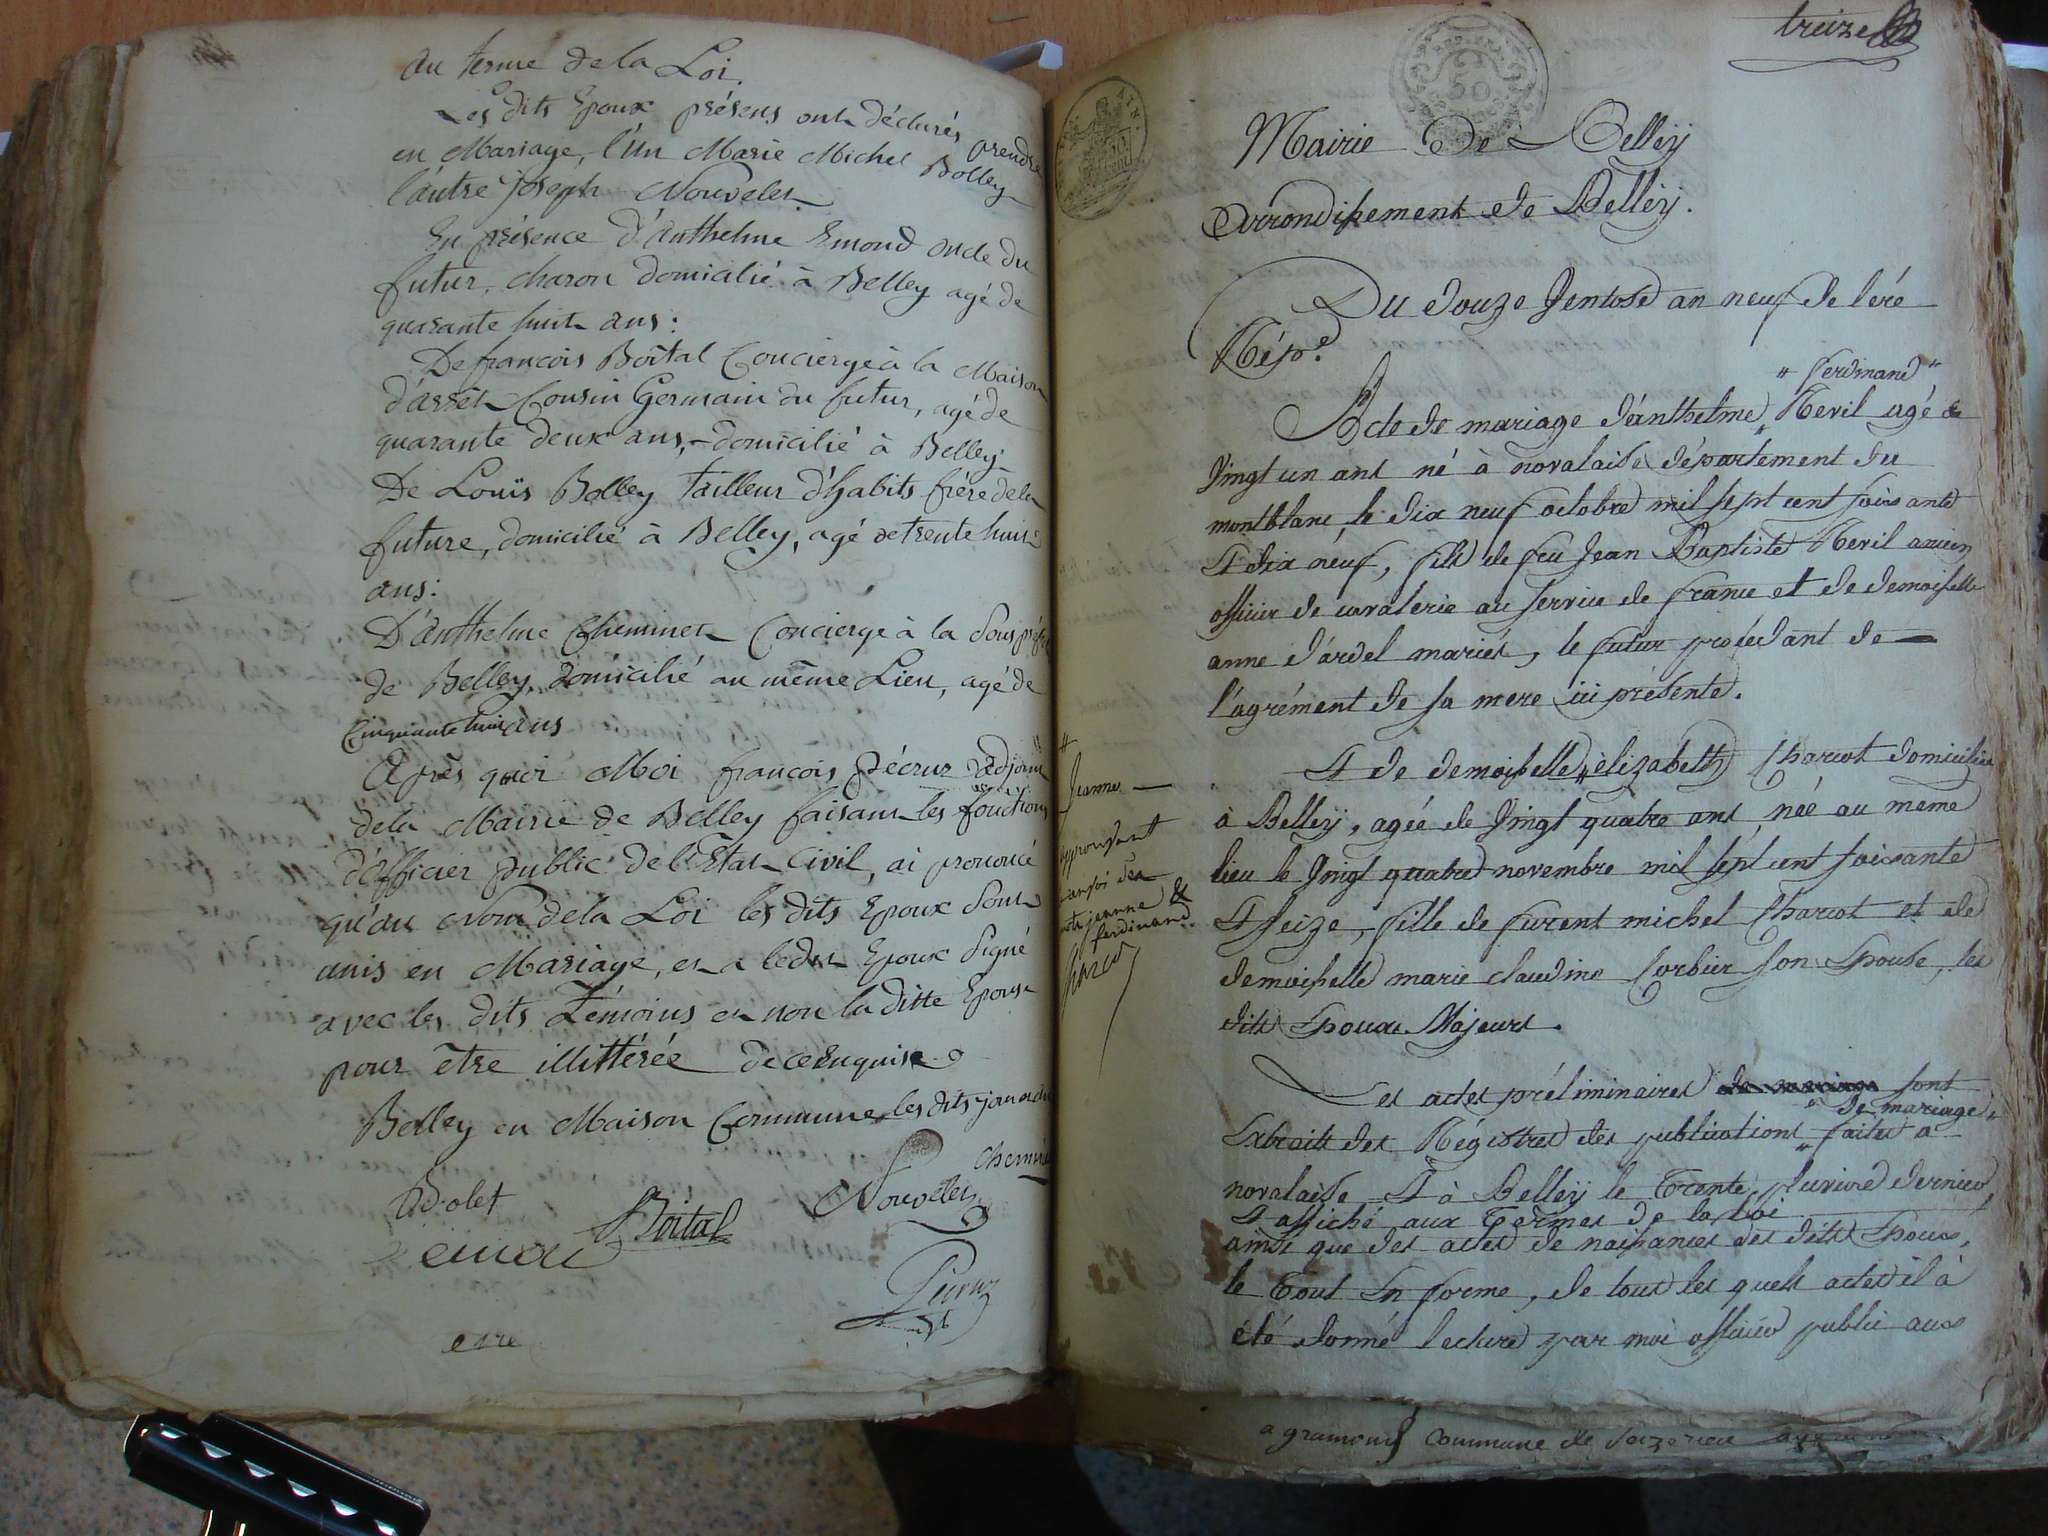 au terme de la Loi.
Les dits Epoux présens ont déclarés prendre
en Mariage, l'un Marie Michel Bolley
l'autre Joseph Nouvelet
En présence d'anthelme Emond oncle du
futur, charon domicilié à Belley agé de
quarante huit ans:
De françois Boital Concierge à la Maison
d'arrêt Cousin Germain du futur, agé de
quarante deux ans, domicilié à Belley
De Louïs Bolley tailleur d'habits frère de la
future, domicilié à Belley, agé de trente huit
ans:
D'anthelme Cheminet Concierge à la Sous
de Belley, domicilié au même Lieu, agé de
Cinquante huit ans
Après quoi Moi françois Pécruz adjoint
de la Mairie de Belley faisant les fonctions
d'officier public de l'Etat Civil, ai prononcé
qu'au Nom de la Loi les dits Epoux Sont
unis en Mariage, et a ledit Epoux Signé
avec les dits Témoins et non la ditte Epouse
pour être illittérée de ce Enquise
Belley en Maison Commune les dits jour
Cheminet
Bolet Boital Nouvelet
emon
Pécruz
treize
REP. FRA.
50
AIN.
Mairie de Belley
Arrondissement de Belley.
Du douze Ventose an neuf de l'ére
Rép.e
" ferdinand "
Acte de mariage d'anthelme " Revil agé de
Vingt un ans né à novalaise département du
montblanc, le dix neuf octobre mil sept cent soixante
& dix neuf, fils de feu Jean Baptiste Revil ancien
officier de cavalerie au service de france et de demoiselle
anne d'ardel mariés, le futur procédant de
l'agrément de sa mere ici présente.
& de demoiselle " elizabeth Charcot domiciliée
à Belley, agée de Vingt quatre ans née au meme
lieu le Vingt quatre novembre mil sept cent soixante
& seize, fille de furent michel Charcot et de
demoiselle marie claudine Corbier son Epouse, les
dits Epoux Majeurs.
Jeanne
approuvant
l'envoi des
mots jeanne &
ferdinand.
Les actes préliminaires de mariage sont
" de mariage "
Extraits des Régistres des publications " faites a
novalaise & à Belley le trente pluviose dernier,
& affiché aux termes de la loi
ainsi que des actes de naissances des dits Epoux,
le tout En forme, de tous les quels actes il à
été donné lecture par moi officier public aux
a gramond Commune de